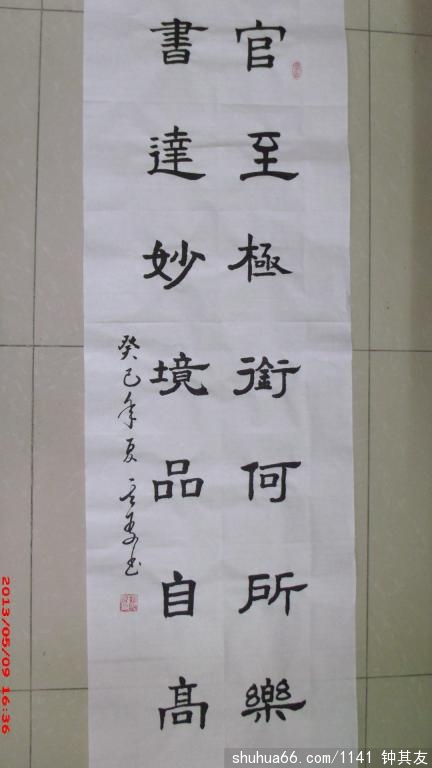 官至極銜何所樂
書達妙境品自高
癸巳年夏
2013/05/09 16:36
shuhua66.com/1141 钟其友